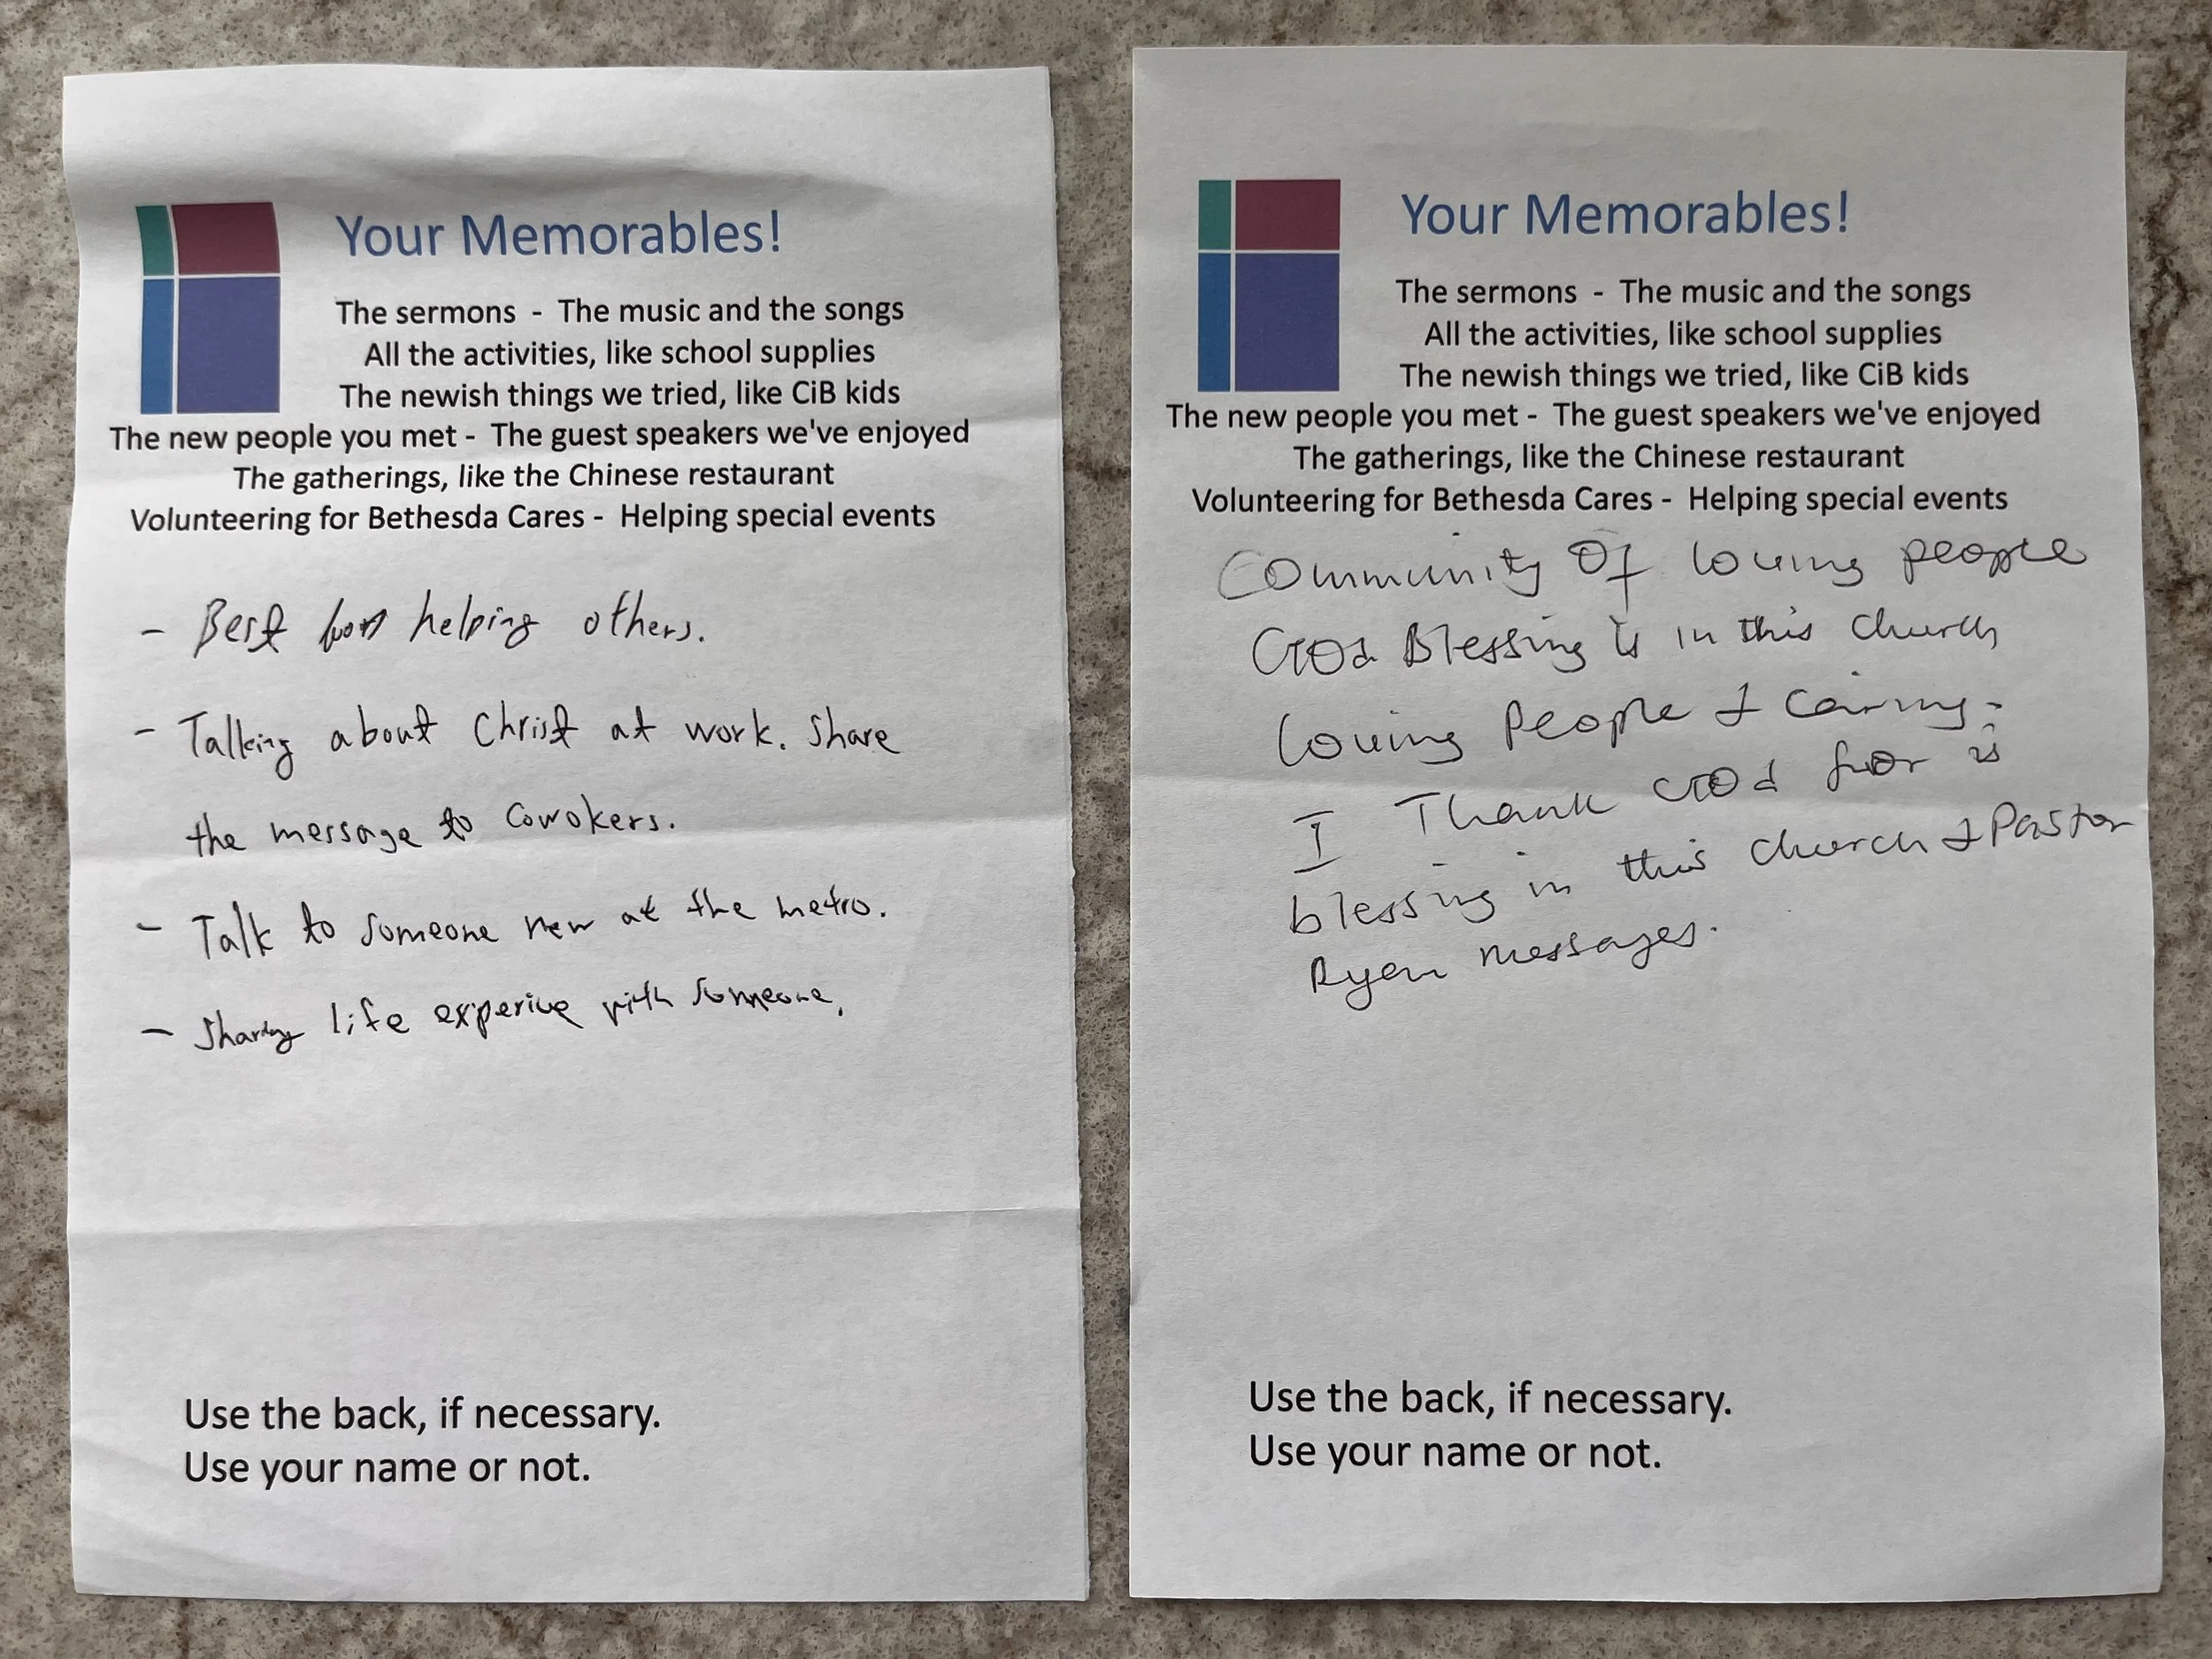 Your Memorables!
The sermons - The music and the songs
All the activities, like school supplies
The newish things we tried, like CiB kids
The new people you met - The guest speakers we've enjoyed
The gatherings, like the Chinese restaurant
Volunteering for Bethesda Cares - Helping special events
- Best helping others.
- Talking about Christ at work. Share
the message to Cowokers.
- Talk to someone new at the metro.
- Sharing life experice with someone.
Use the back, if necessary.
Use your name or not.
Your Memorables!
The sermons - The music and the songs
All the activities, like school supplies
The newish things we tried, like CiB kids
The new people you met - The guest speakers we've enjoyed
The gatherings, like the Chinese restaurant
Volunteering for Bethesda Cares - Helping special events
Community Of loving people
God Blessing is in this church
loving People & Caring.
I Thank God for is
blessing in this church & Pastor
Ryan messages.
Use the back, if necessary.
Use your name or not.